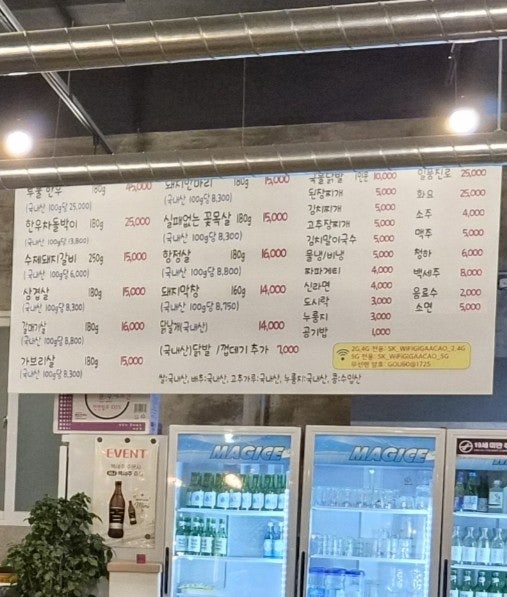 투뿔 한우 180g 45,000
(국내산 100g당 25,000)
한우차돌박이 180g 25,000
(국내산 100g당 13,800)
수제돼지갈비 250g 15,000
(국내산 100g당 6,000)
삼겹살 180g 15,000
(국내산 100g당 8,300)
갈매기살 180g 16,000
(국내산 100g당 8,800)
가브리살 180g 15,000
(국내산 100g당 8,300)
돼지한마리 180g 15,000
(국내산 100g당 8,300)
실패없는 꽃목살 180g 15,000
(국내산 100g당 8,300)
항정살 180g 16,000
(국내산 100g당 8,800)
돼지막창 160g 14,000
(국내산 100g당 8,750)
닭날개(국내산) 14,000
(국내산)닭발 / 껍데기 추가 7,000
국물닭발 1인분 10,000
된장찌개 5,000
김치찌개 5,000
고추장찌개 5,000
김치말이국수 5,000
물냉/비냉 5,000
짜파게티 4,000
신라면 4,000
도시락 3,000
누룽지 3,000
공기밥 1,000
일품진로 25,000
화요 25,000
소주 4,000
맥주 5,000
청하 6,000
백세주 8,000
음료수 2,000
소면 5,000
쌀:국내산, 배추:국내산, 고추가루:국내산, 누룽지:국내산, 콩:수입산
2G,4G 전용: SK_WiFiGIGAACAO_2.4G
5G 전용: SK_WiFiGIGAACAO_5G
무선랜 암호: GOU60@1725
EVENT
MAGICE
MAGICE
19세 미만